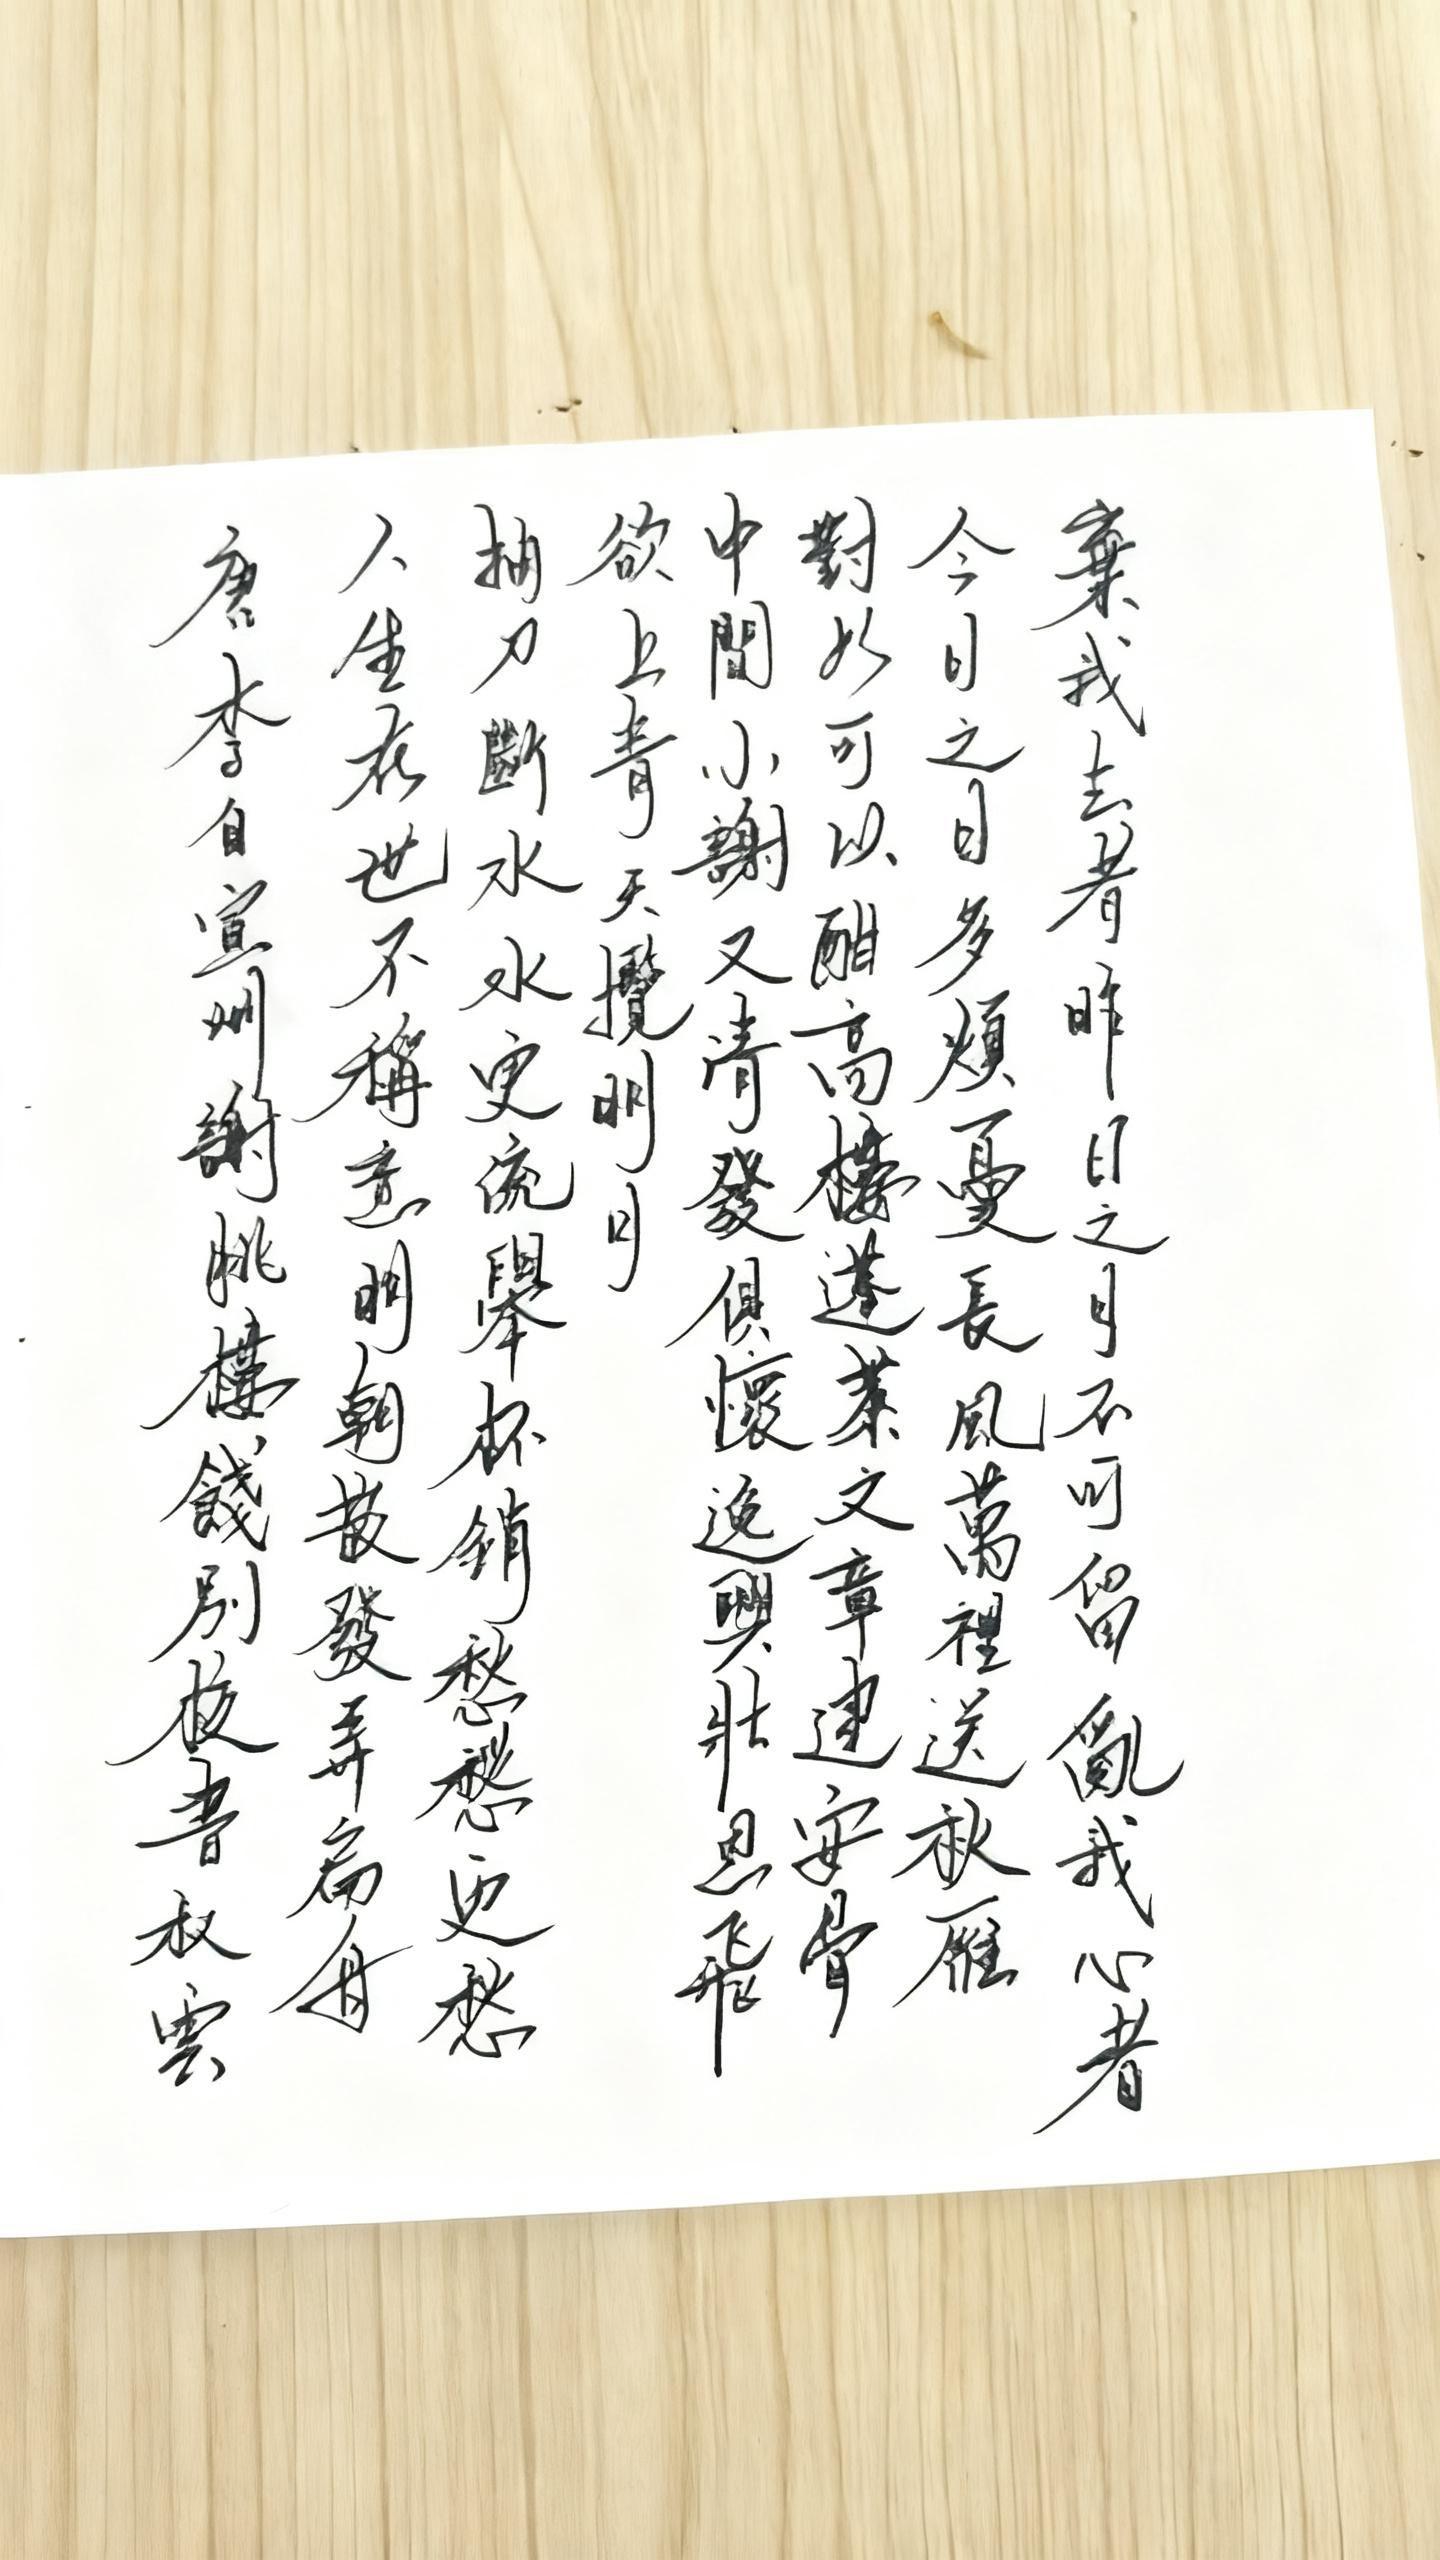 棄我去者昨日之日不可留亂我心者
今日之日多煩憂長風萬裡送秋雁
對此可以酣高樓蓬萊文章建安骨
中間小謝又清發俱懷逸興壯思飛
欲上青天攬明月
抽刀斷水水更流舉杯銷愁愁更愁
人生在世不稱意明朝散發弄扁舟
唐李白宣州謝朓樓餞別校書叔雲